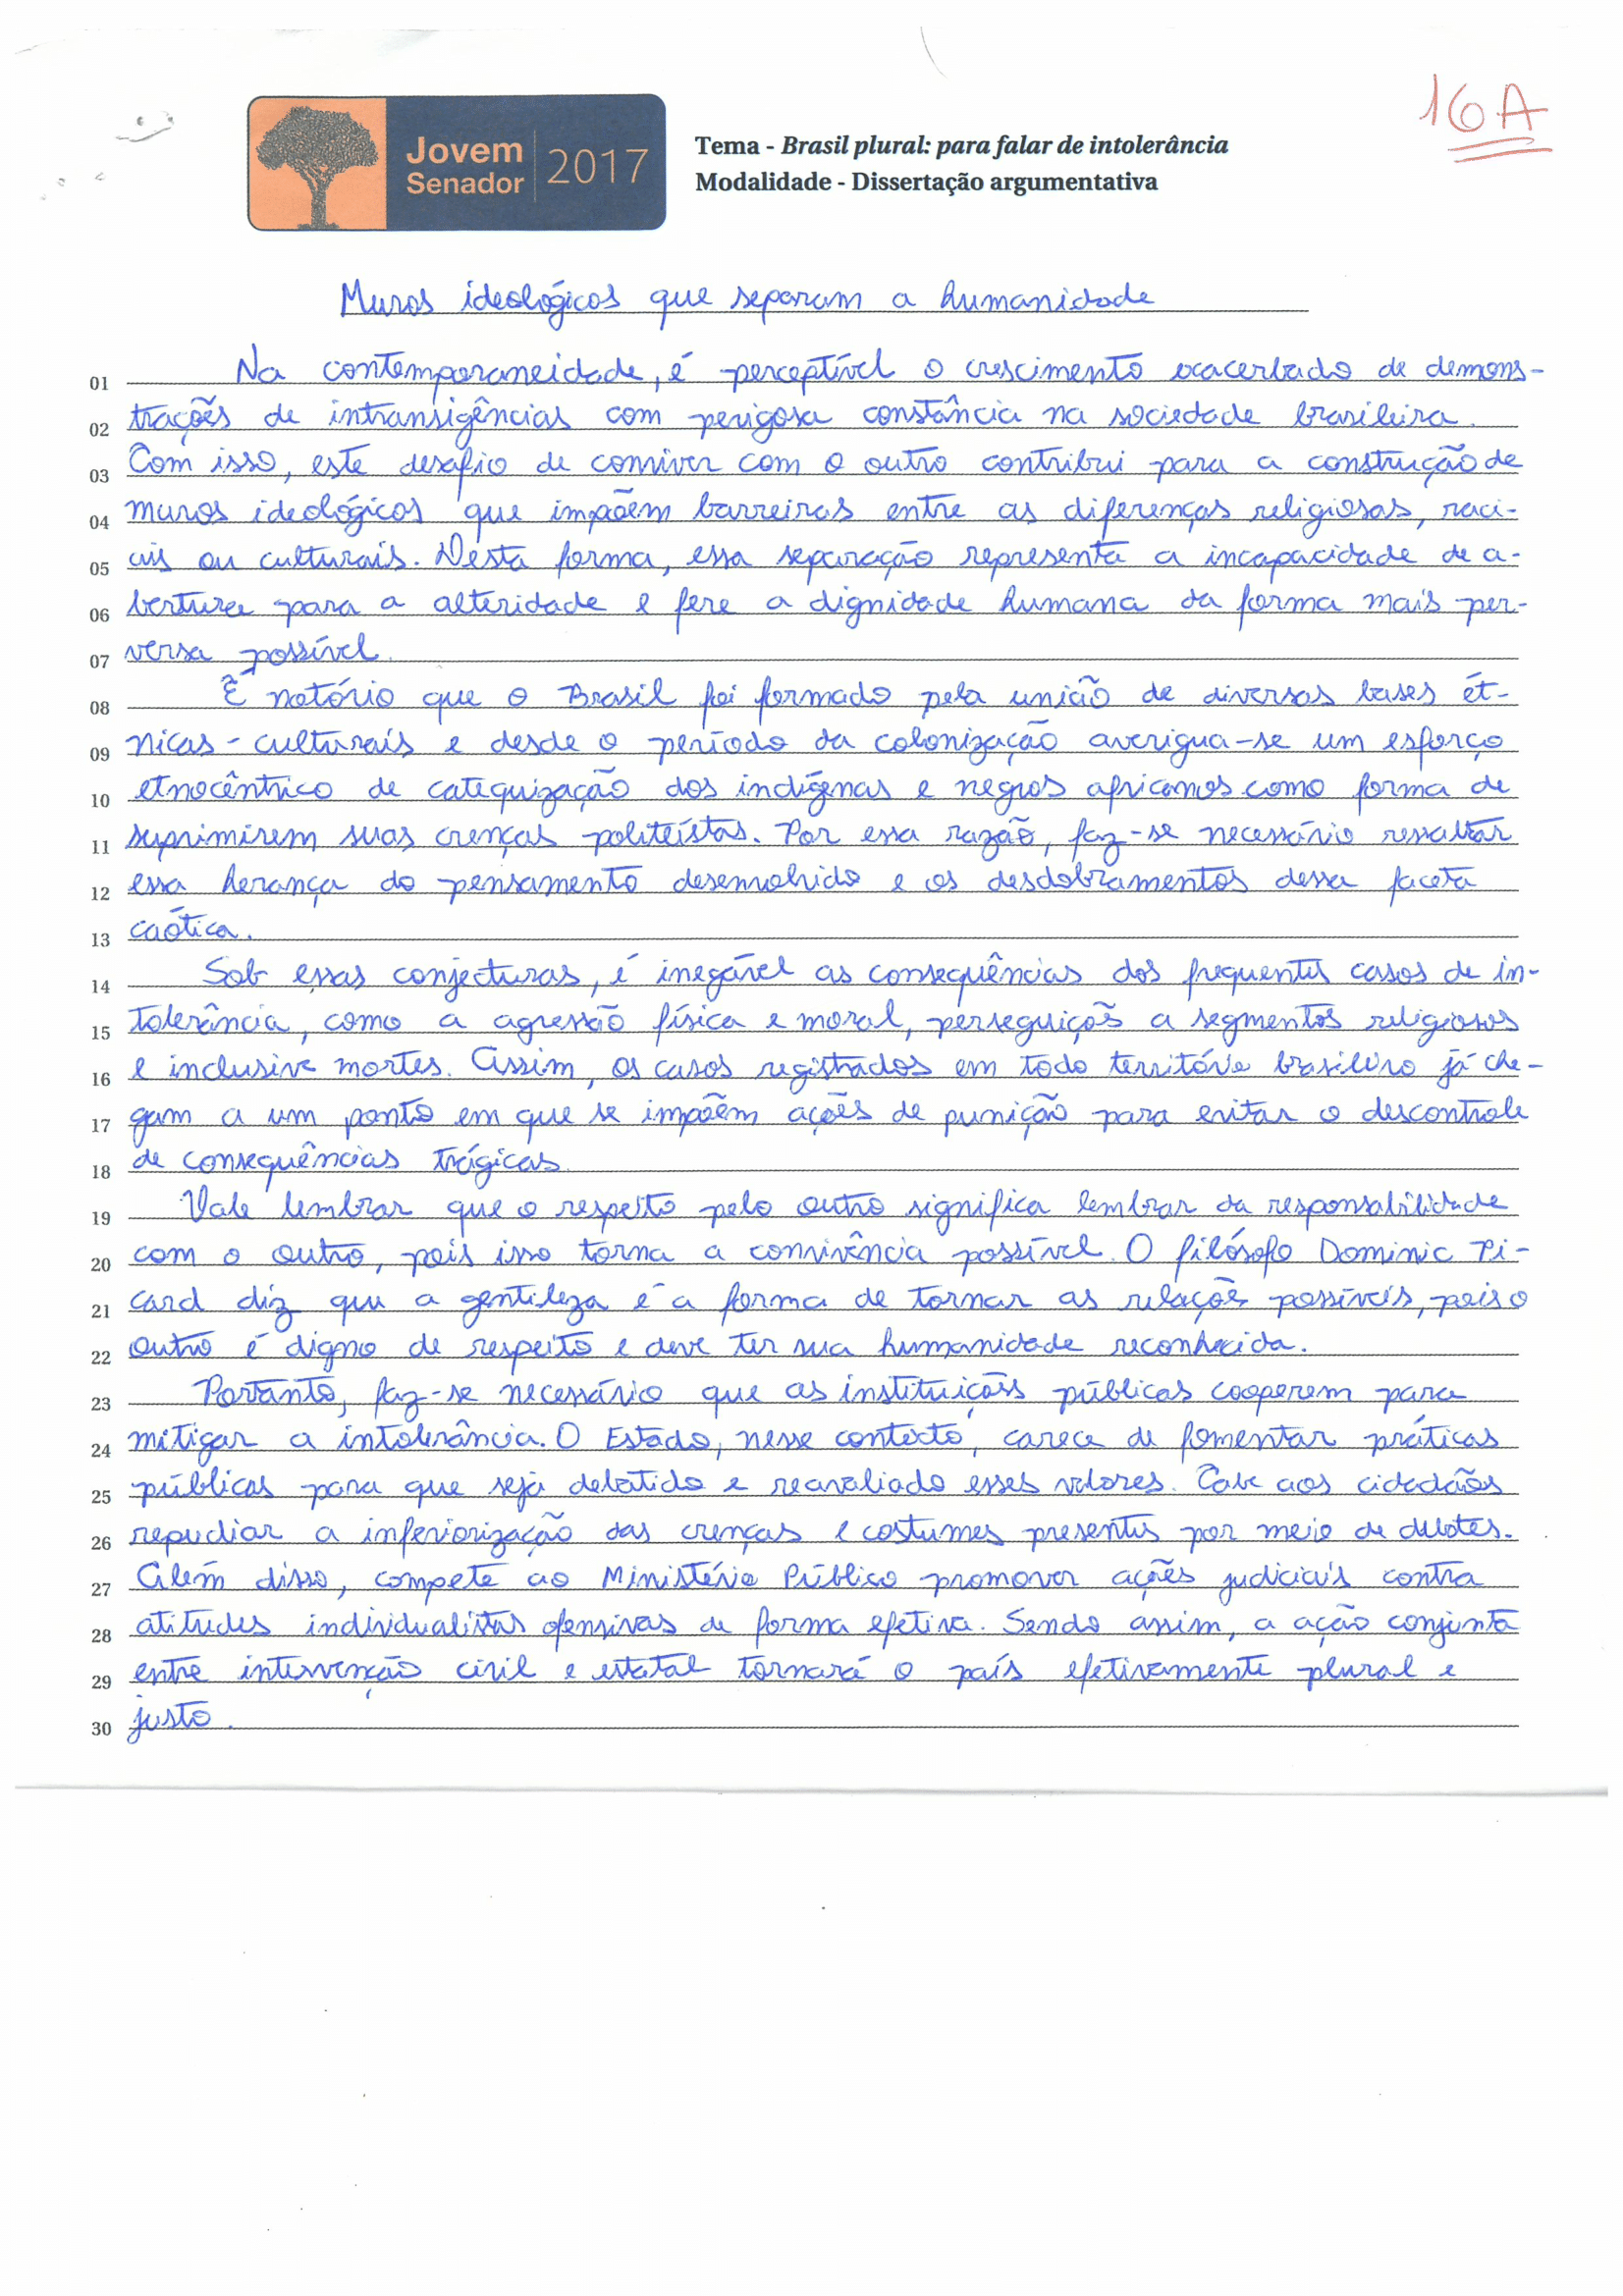 16A
Jovem
Senador
2017
Tema - Brasil plural: para falar de intolerância
Modalidade - Dissertação argumentativa
Muros ideológicos que separam a humanidade
01 Na contemporaneidade, é perceptível o crescimento exacerbado de demons-
02 trações de intransigências com perigosa constância na sociedade brasileira.
03 Com isso, este desafio de conviver com o outro contribui para a construção de
04 muros ideológicos que impõem barreiras entre as diferenças religiosas, raci-
05 ais ou culturais. Desta forma, essa separação representa a incapacidade de a-
06 bertura para a alteridade e fere a dignidade humana da forma mais per-
07 versa possível.
08 É notório que o Brasil foi formado pela união de diversas bases ét-
09 nicas-culturais e desde o período da colonização averigua-se um esforço
10 etnocêntrico de catequização dos indígenas e negros africanos como forma de
11 suprimirem suas crenças politeístas. Por essa razão, faz-se necessário ressaltar
12 essa herança do pensamento desenvolvido e os desdobramentos dessa faceta
13 caótica.
14 Sob essas conjecturas, é inegável as consequências dos frequentes casos de in-
15 tolerância, como a agressão física e moral, perseguições a segmentos religiosos
16 e inclusive mortes. Assim, os casos registrados em todo território brasileiro já che-
17 gam a um ponto em que se impõem ações de punição para evitar o descontrole
18 de consequências trágicas.
19 Vale lembrar que o respeito pelo outro significa lembrar da responsabilidade
20 com o outro, pois isso torna a convivência possível. O filósofo Dominic Pi-
21 card diz que a gentileza é a forma de tornar as relações possíveis, pois o
22 outro é digno de respeito e deve ter sua humanidade reconhecida.
23 Portanto, faz-se necessário que as instituições públicas cooperem para
24 mitigar a intolerância. O Estado, nesse contexto, carece de fomentar práticas
25 públicas para que seja debatido e reavaliado esses valores. Cabe aos cidadãos
26 repudiar a inferiorização das crenças e costumes presentes por meio de debates.
27 Além disso, compete ao Ministério Público promover ações judiciais contra
28 atitudes individualistas ofensivas de forma efetiva. Sendo assim, a ação conjunta
29 entre intervenção civil e estatal tornará o país efetivamente plural e
30 justo.